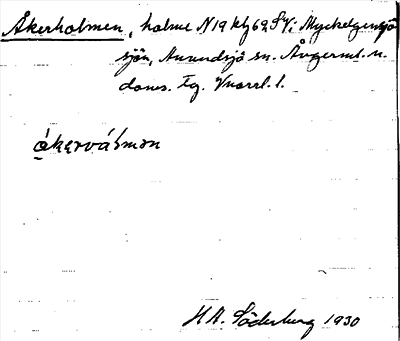 Åkerholmen, holme N19 kbg69 SV i Myckelgensjö
sjön, Anundsjö sn. Ångerml. n.
doms. Fg. Vnorrl. l.
åkervåɫmən
H A. Söderberg 1930